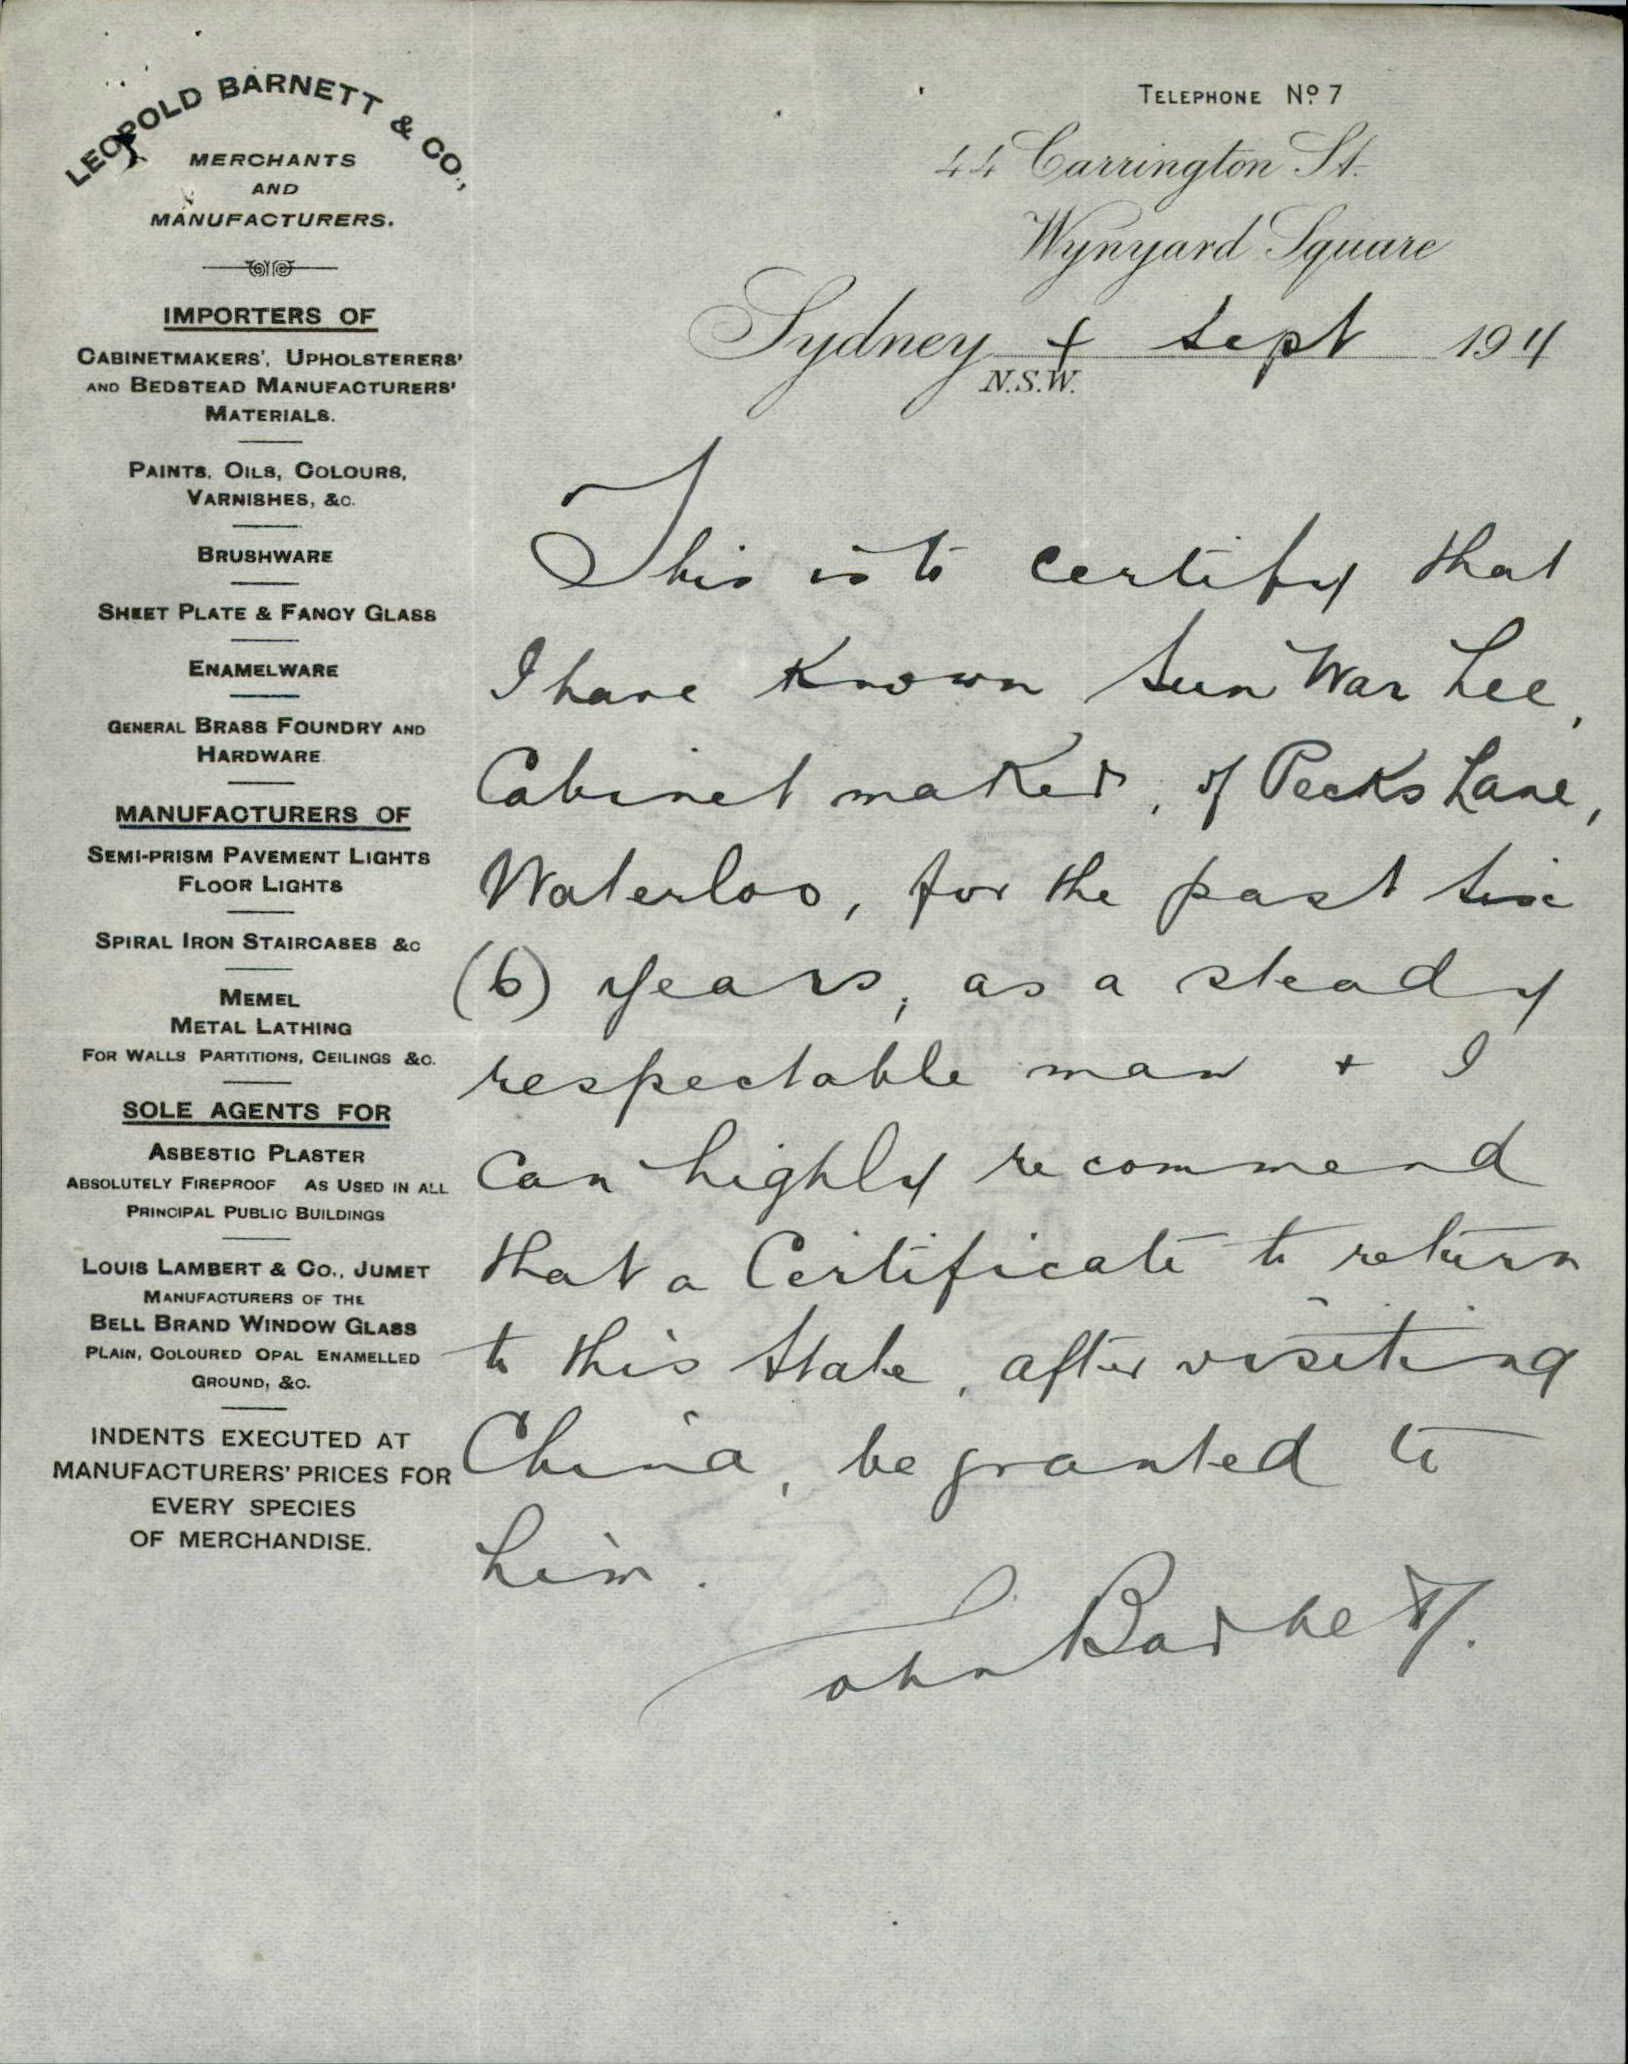 LEOPOLD BARNETT & CO.,
MERCHANTS
AND
MANUFACTURERS.
IMPORTERS OF
CABINETMAKERS', UPHOLSTERERS'
AND BEDSTEAD MANUFACTURERS'
MATERIALS.
PAINTS, OILS, COLOURS,
VARNISHES, &C.
BRUSHWARE
SHEET PLATE & FANCY GLASS
ENAMELWARE
GENERAL BRASS FOUNDRY AND
HARDWARE
MANUFACTURERS OF
SEMI-PRISM PAVEMENT LIGHTS
FLOOR LIGHTS
SPIRAL IRON STAIRCASES &C
MEMEL
METAL LATHING
FOR WALLS PARTITIONS, CEILINGS &C.
SOLE AGENTS FOR
ASBESTIC PLASTER
ABSOLUTELY FIREPROOF AS USED IN ALL
PRINCIPAL PUBLIC BUILDINGS
LOUIS LAMBERT & CO., JUMET
MANUFACTURERS OF THE
BELL BRAND WINDOW GLASS
PLAIN, COLOURED OPAL ENAMELLED
GROUND, &C.
INDENTS EXECUTED AT
MANUFACTURERS' PRICES FOR
EVERY SPECIES
OF MERCHANDISE.
TELEPHONE No 7
44 Carrington St.
Wynyard Square
Sydney 4 Sept 1904
N.S.W.
This is to certify that
I have known Sun War Lee,
Cabinet maker, of Pecks Lane,
Waterloo, for the past six
(6) years, as a steady
respectable man + I
can highly recommend
that a Certificate to return
to this State, after visiting
China, be granted to
him.
John Barnett.